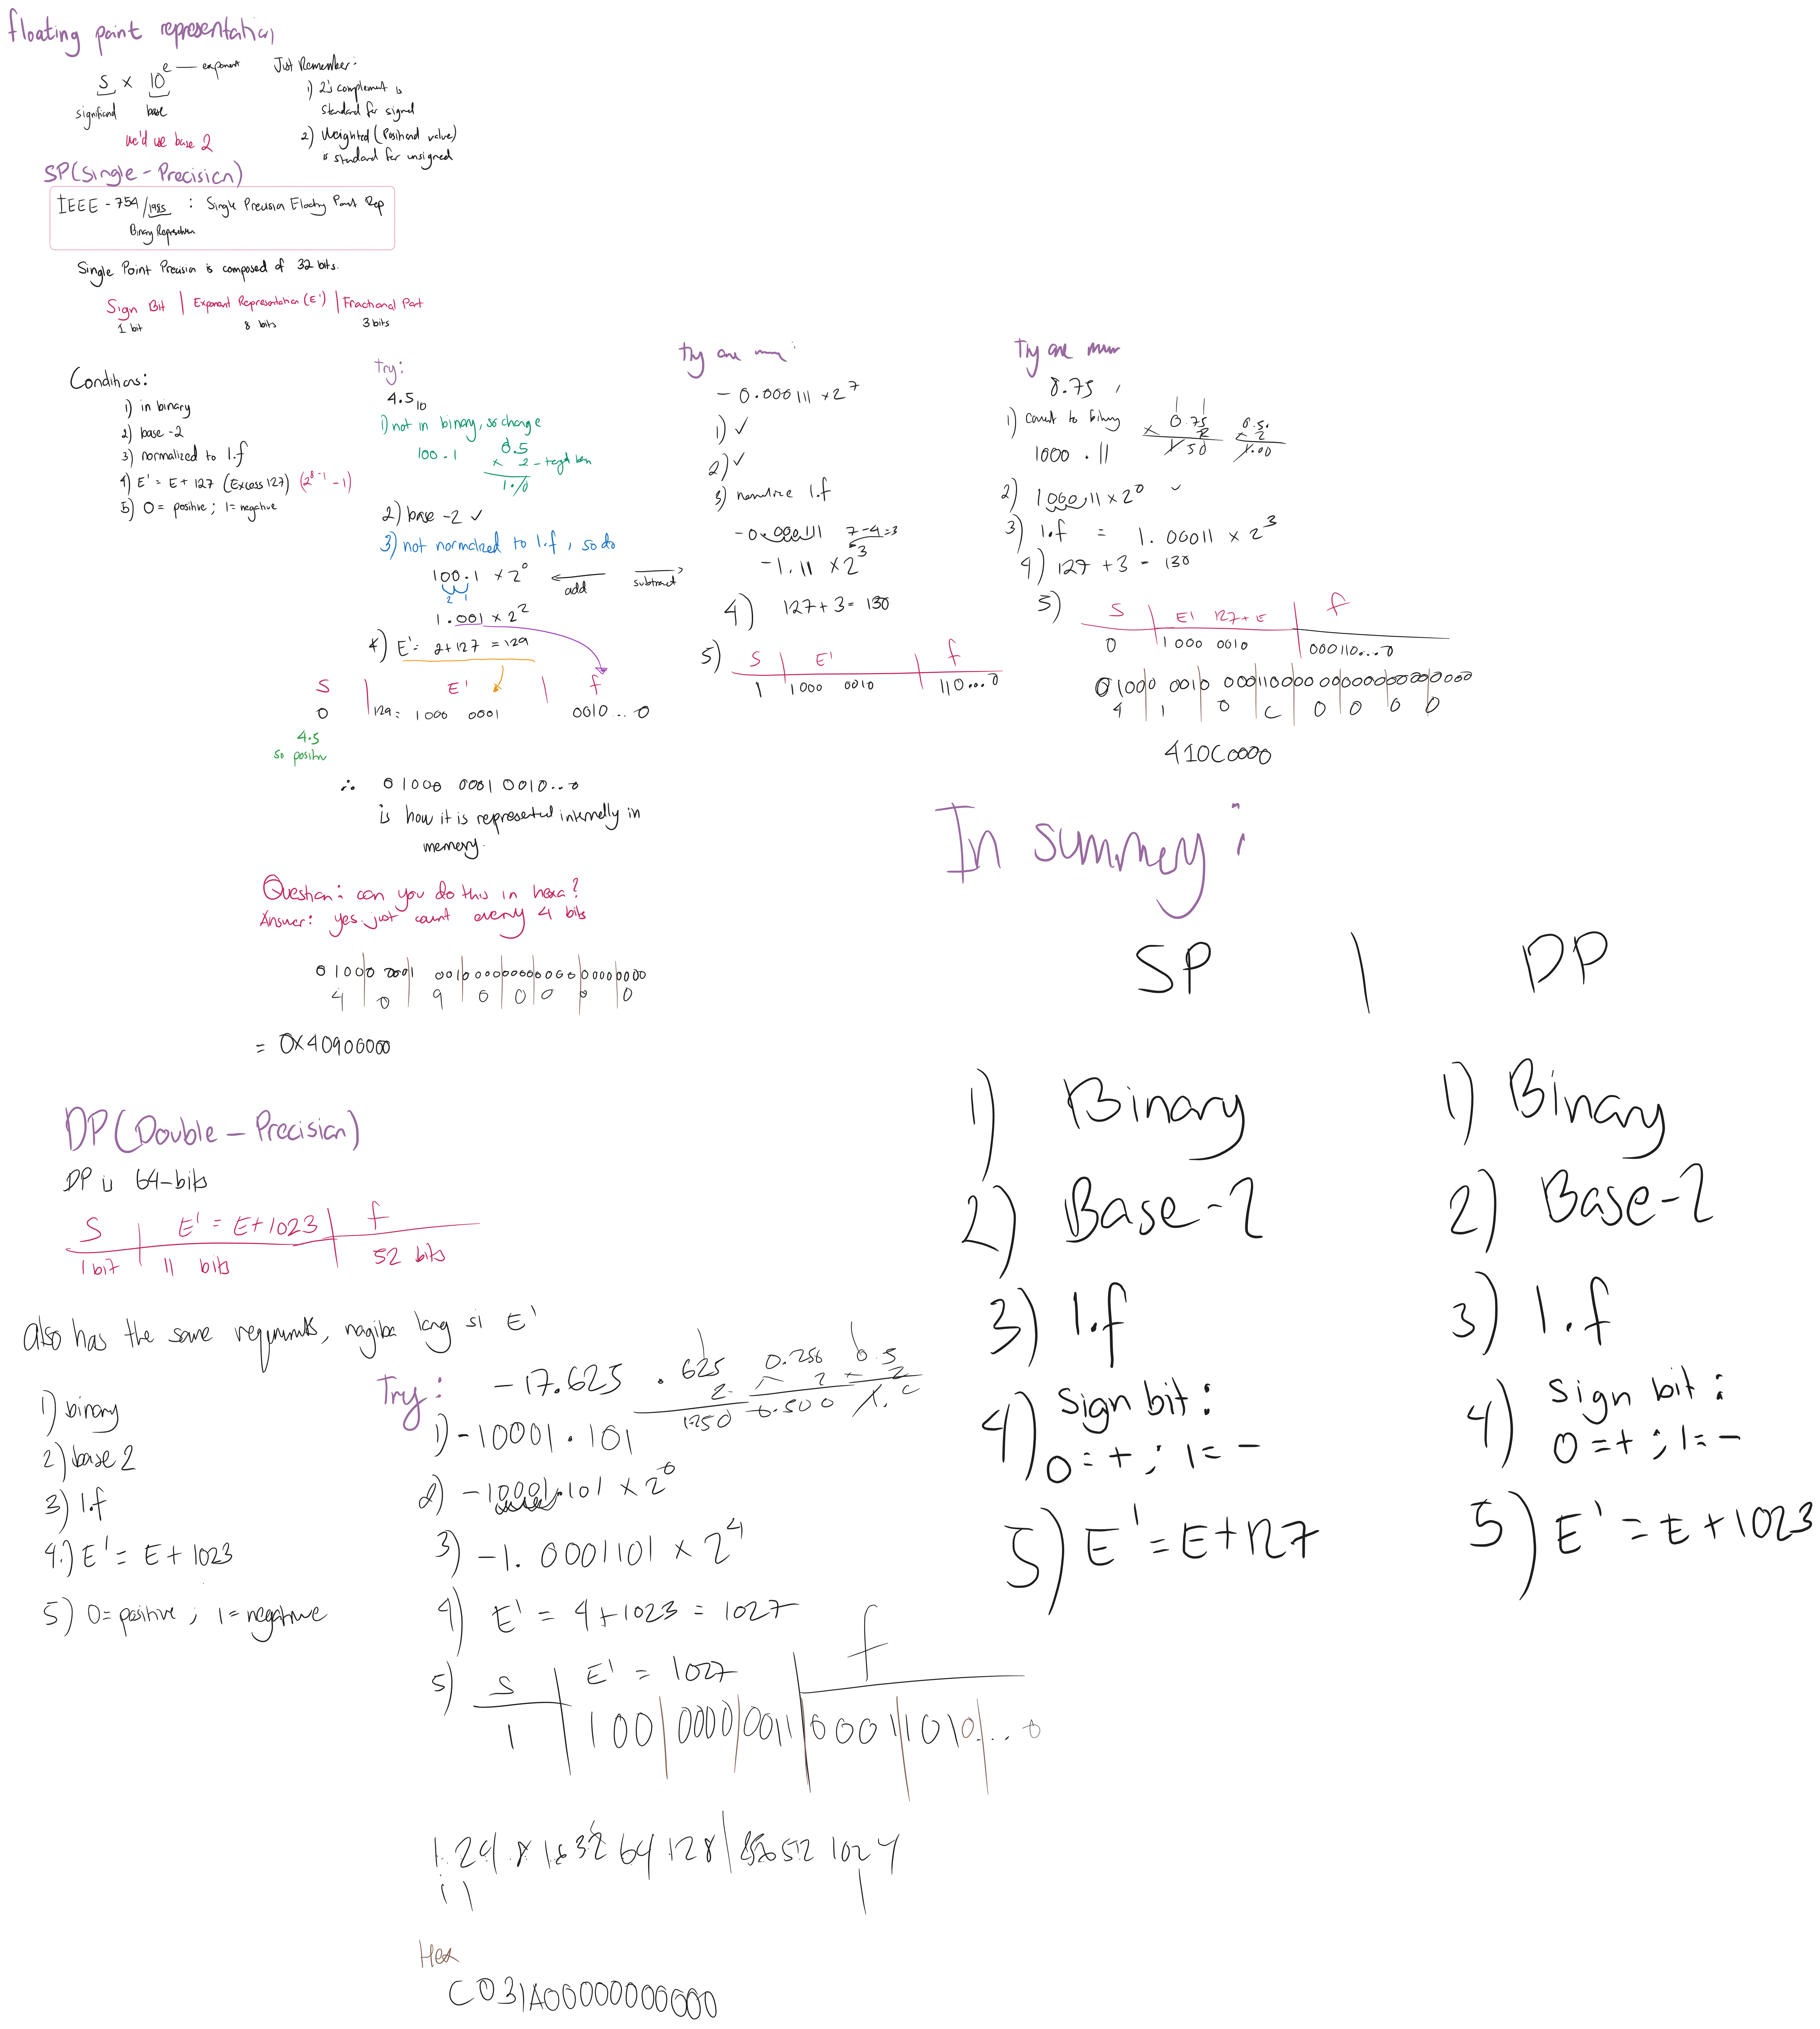 floating point representation
S × 10^e — exponent
significand base
we'd use base 2
Just Remember:
1) 2's complement is
standard for signed
2) Weighted (Positional value)
is standard for unsigned
SP (Single-Precision)
IEEE-754/1985 : Single Precision Floating Point Rep
Binary Representation
Single Point Precision is composed of 32 bits.
Sign Bit | Exponent Representation (E') | Fractional Part
1 bit 8 bits 3 bits
Conditions:
1) in binary
2) base-2
3) normalized to 1.f
4) E' = E + 127 (Excess 127) (2^8-1 -1)
5) 0 = positive ; 1 = negative
try:
4.5₁₀
1) not in binary, so change
100.1
0.5
× 2
1.0
2) base-2 ✓
3) not normalized to 1.f, so do
100.1 × 2^0
2 1
← add
→ subtract
1.001 × 2^2
4) E' = 2+127 = 129
S | E' | f
0 | 129 = 1000 0001 0010...0
4.5
so positive
∴ 01000 0001 0010...0
is how it is represented internally in
memory.
Question: can you do this in hexa?
Answer: yes just count every 4 bits
0 1000 0001 00100000000000000000000
4 0 9 0 0 0 0 0
= 0x40900000
try one more:
-0.000111 × 2^7
1) ✓
2) ✓
3) normalize 1.f
-0.000111 7-4=3
-1.11 × 2^3
4) 127+3 = 130
5) S | E' | f
1 | 1000 0010 | 110...0
Try one more
8.75
1) convert to binary
1000.11
0.75
× 2
1.50
0.50
× 2
1.00
2) 1000.11 × 2^0 ✓
3) 1.f = 1.00011 × 2^3
4) 127 + 3 = 130
5) S | E' 127+E | f
0 | 1000 0010 | 000110...0
0 1000 0010 00011000000000000000000
4 1 0 C 0 0 0 0
410C0000
In summary:
SP | DP
1) Binary
2) Base-2
3) 1.f
4) Sign bit:
0 = + ; 1 = -
5) E' = E+127
1) Binary
2) Base-2
3) 1.f
4) Sign bit:
0 = + ; 1 = -
5) E' = E + 1023
DP (Double-Precision)
DP is 64-bits
S | E' = E+1023 | f
1 bit | 11 bits | 52 bits
also has the same requirements, nagiba lang si E'
1) binary
2) base 2
3) 1.f
4.) E' = E + 1023
5) 0 = positive ; 1 = negative
Try: -17.625
.625
2
1.250
0.250
× 2
0.500
0.5
× 2
1.0
1) -10001.101
2) -10001.101 × 2^0
3) -1.0001101 × 2^4
4) E' = 4+1023 = 1027
5) S | E' = 1027 | f
1 | 100|0000|0011|0001|1010|...0
1 2 4 8 16 32 64 128 256 512 1024
1 1 1
Hex
C031A00000000000